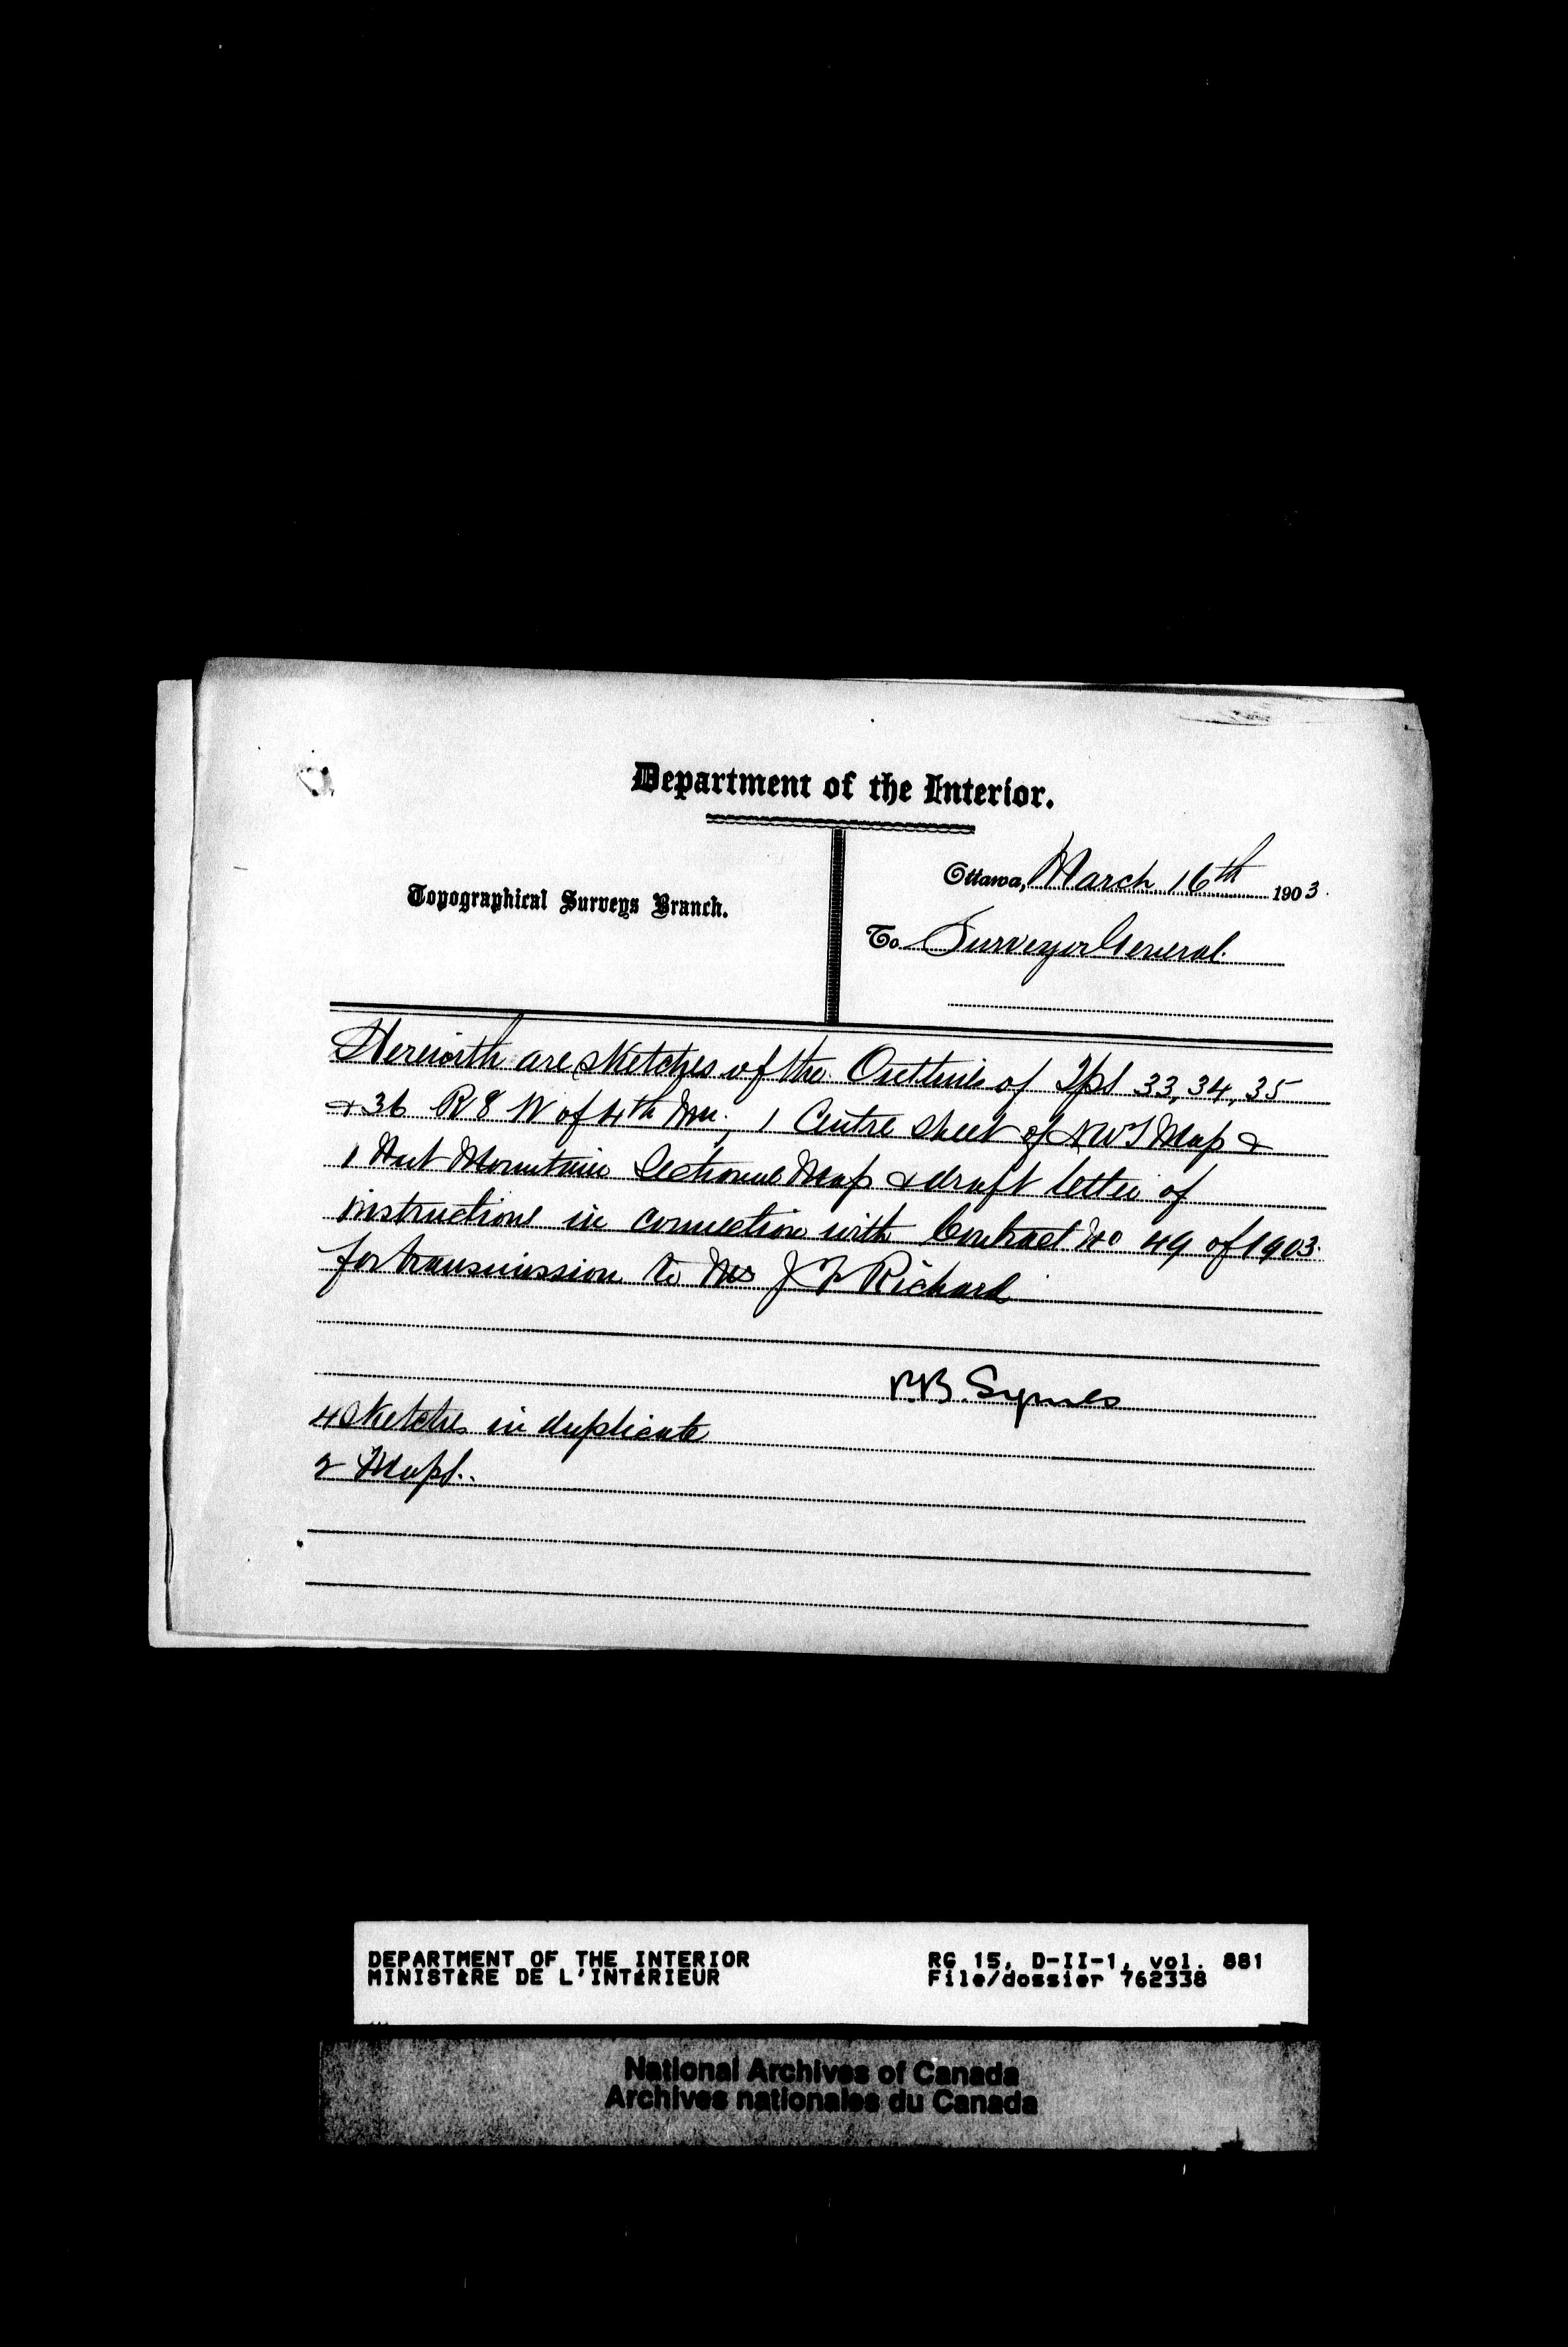 Department of the Interior.
Topographical Surveys Branch.
Ottawa, March 16th 1903.
To Surveyor General.
Herewith are sketches of the Outlines of Tps 33, 34, 35
& 36 R 8 W of 4th Mer; 1 Centre sheet of NWT Map &
1 Nut Mountain Sectional Map & draft letter of
instructions in connection with Contract No 49 of 1903.
for transmission to Mr J F Richard
Symes
4 Sketches in duplicate
2 Maps..
DEPARTMENT OF THE INTERIOR
MINISTÈRE DE L'INTÉRIEUR
RG 15, D-II-1, vol. 881
File/dossier 762338
National Archives of Canada
Archives nationales du Canada